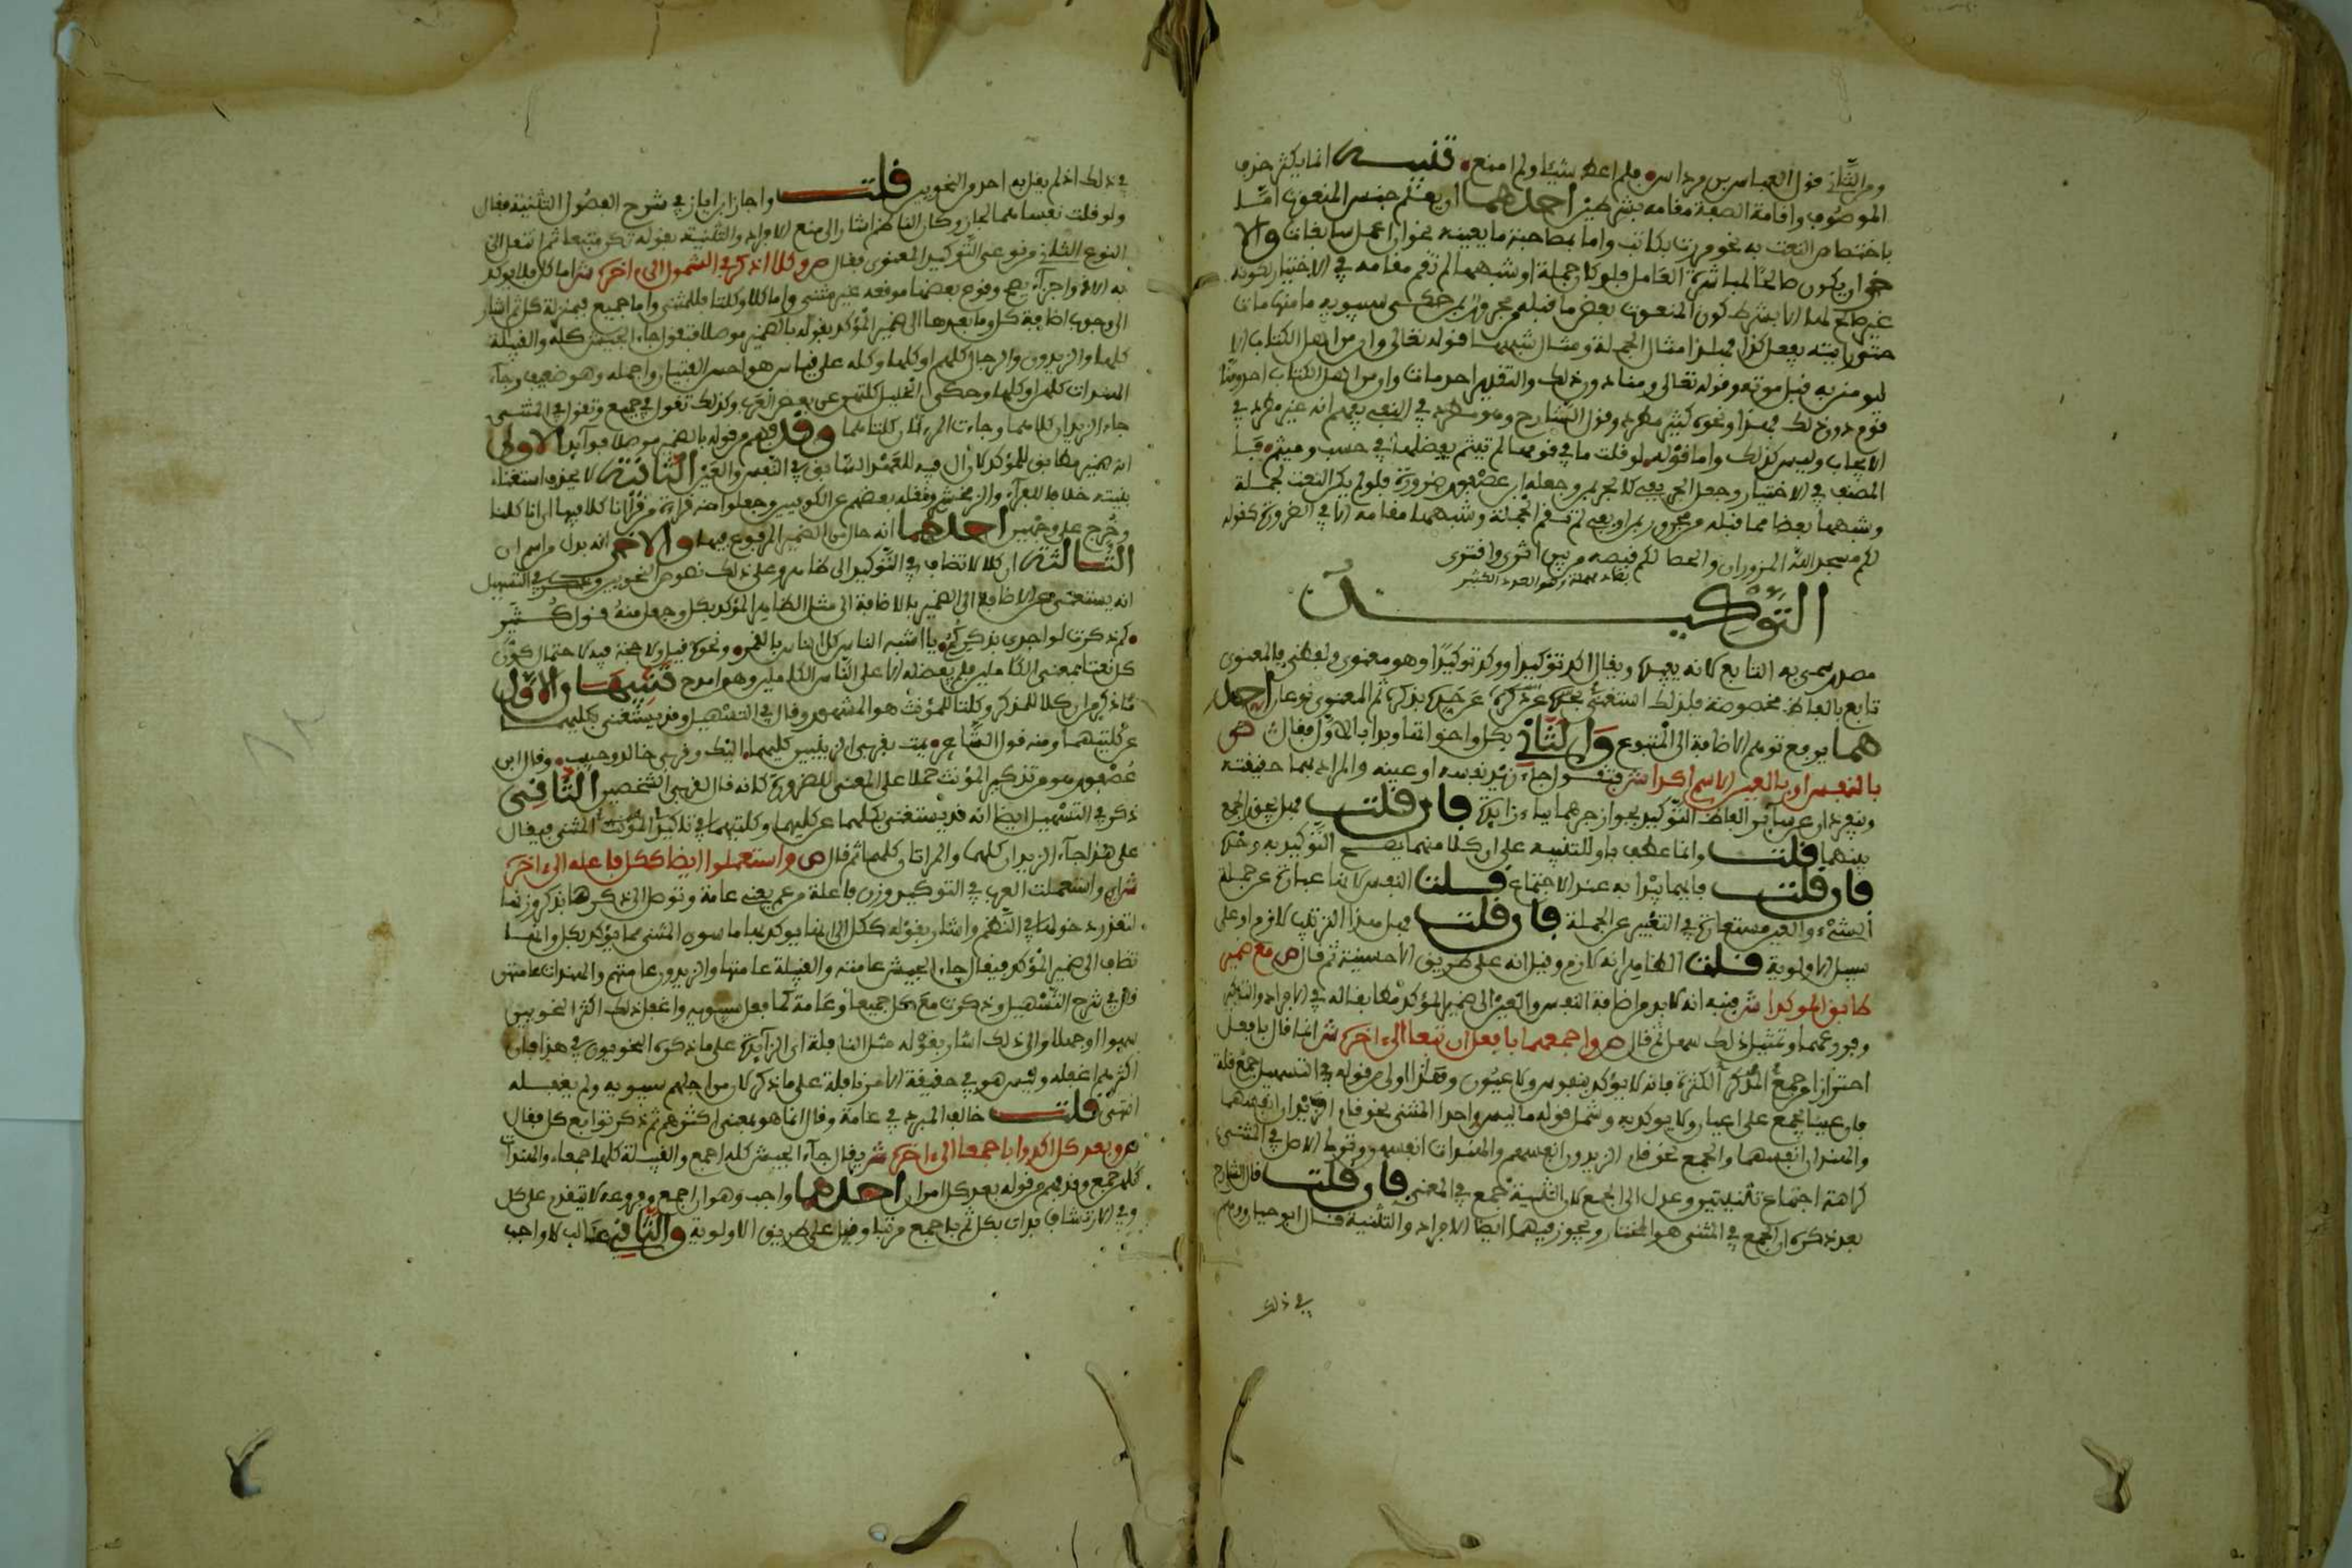 ومن الثاني قول العباس بن مرداس فلم اعط شيئا ولم امنع تنبيه انما يكثر حذف
الموصوف واقامة الصفة مقامه بشرطين احدهما ان يعلم جنس المنعوت اما
باختصاص النعت به نحو مررت بكاتب واما بمصاحبة ما يعينه نحو ان اعمل سابغات والا
خر ان يكون صالحا لمباشرة العامل فلو كان جملة او شبهها لم تقم مقامه في الاختيار لكونه
غير صالح لها الا بشرط كون المنعوت بعض ما قبله من مجرور بمن حكى سيبويه ما منهما مات
حتى رايته يفعل كذا فهذا مثال الجملة ومثال شبهها قوله تعالى وان من اهل الكتاب الا
ليومنن به قبل موته وقوله تعالى ومنا دون ذلك والتقدير احد مات وان من اهل الكتاب احد ومنا
قوم دون ذلك فهذا ونحوه كثير مطرد وقول الشارح وهو مطرد في النفي يفهم انه غير مطرد في
الايجاب وليس كذلك واما قوله لو قلت ما في قومها لم تيثم يفضلها في حسب وميثم
المصنف في الاختيار وجعل الجر بفي كالجر بمن وجعله ابن عصفور ضرورة فلو لم يكن النعت بجملة
وشبهها بعضا مما قبله من مجرور بمن او بفي لم تقم الجملة وشبهها مقامه الا في الضرورة كقوله
لكم مسجد الله المزوران والحصا لكم قبصه من بين اثرى واقترى
التوكيد
مصدر سمي به التابع لانه يفيده ويقال اكد توكيدا ووكد توكيدا وهو معنوي ولفظي فالمعنوي
تابع بالفاظ مخصوصة فلذلك استغنى عن حده بذكره ثم المعنوي نوعان احد
هما يرفع توهم الاضافة الى المتبوع والثاني بكل واخواتها وبدا بالاول فقال ص
بالنفس او بالعين الاسم اكدا ش فتقول جاء زيد نفسه او عينه والمراد بهما حقيقته
وينفردان عن سائر الفاظ التوكيد بجواز جرهما بباء زايدة فان قلت فهل يجوز الجمع
بينهما قلت وانما عطف باو للتنبيه على ان كلا منهما يصح التوكيد به وحده
فان قلت فايهما يبدا به عند الاجتماع قلت النفس لانها عبارة عن جملة
الشيء والعين مستعارة في التعبير عن الجملة فان قلت فهل هذا الترتيب لازم او على
سبيل الاولوية قلت الظاهر انه لازم وقيل انه على طريق الاحسنية ثم قال ص مع ضمير
طابق الموكدا ش فنبه انه لا بد من اضافة النفس والعين الى ضمير المؤكد مطابقا له في الافراد والتذكير
وفروعهما وتمثيل ذلك سهل ثم قال ص واجمعهما بافعل ان تبعا الى اخره ش انما قال بافعل
احترازا من جمع الكثرة فانه لا يؤكد بنفوس ولا عيون وهذا اولى من قوله في التسهيل جمع قلة
فان عينا يجمع على اعيان ولا يوكد به وشمل قوله ما ليس واحدا المثنى نحو قام الزيدان انفسهما
والهندان انفسهما والجمع نحو قام الزيدون انفسهم والهندات انفسهن وترك الاصل في المثنى
كراهة اجتماع تثنيتين وعدل الى الجمع لان التثنية جمع في المعنى فان قلت قال الشارح
بعد ذكره ان الجمع في المثنى هو المختار ويجوز فيهما ايضا الافراد والتثنية قال ابو حيان ووهم
في ذلك
في ذلك اذ لم يقل به احد من النحويين قلت واجاز ابن اياز في شرح الفصول التثنية فقال
ولو قلت نفساهما لجاز وكان الناظم اشار الى منع الافراد والتثنية بقوله تكن متبعا ثم انتقل الى
النوع الثاني من نوعي التوكيد المعنوي فقال ص وكلا اذكر في الشمول الى اخره ش اما كل فلا يوكد
به الا ذو اجزاء يصح وقوع بعضها موقعه غير مثنى واما كلا وكلتا فللمثنى واما جميع فبمنزلة كل ثم اشار
الى وجوب اضافة كل وما بعدها الى ضمير المؤكد بقوله بالضمير موصلا فتقول جاء الجيش كله والقبيلة
كلها والزيدون والرجال كلهم او كلها وكله على قياس هو احسن الفتيان واجمله وهو ضعيف وجاء
الهندات كلهن او كلها وحكى الخليل كلتهن عن بعض العرب وكذلك تقول في جميع وتقول في المثنى
جاء الزيدان كلاهما وجاءت المراتان كلتاهما وقد فهم من قوله بالضمير موصلا فوايد الاولى
انه ضمير مطابق للمؤكد لان ال فيه للعهد السابق في النفس والعين الثانية لا يحذف استغناء
بنيته خلافا للفراء والزمخشري ونقله بعضهم عن الكوفيين وجعلوا منه قراءة من قرا انا كلا فيها اي انا كلنا
وخرج على وجهين احدهما انه حال من الضمير المرفوع فيها والاخر انه بدل من اسم ان
الثالثة ان كلا لا تضاف في التوكيد الى ظاهر وعلى ذلك نصوص النحويين وذكر في التسهيل
انه يستغنى عن الاضافة الى الضمير بالاضافة الى مثل الظاهر المؤكد بكل وجعل منه قول كثير
كم ذكرتك لو اجزى بذكركم يا اشبه الناس كل الناس بالقمر ونحوه قيل ولا حجة فيه لاحتمال كون
كل نعتا بمعنى الكاملين فلم يفضله الا على الناس الكاملين وهو امدح تنبيهان الاول
ما ذكر من ان كلا للمذكر وكلتا للمؤنث هو المشهور وقال في التسهيل وقد يستغنى بكليهما
عن كلتيهما ومنه قول الشاعر يمت بقربى الزينبين كليهما اليك وقربى خالد وحبيب وقال ابن
عصفور هو من تذكير المؤنث حملا على المعنى للضرورة كانه قال قربى الشخصين الثاني
ذكر في التسهيل ايضا انه قد يستغنى بكلهما عن كليهما وكلتيهما في تذكير المؤنث المثنى فيقال
على هذا جاء الزيدان كلهما والمراتان كلهما ثم قال ص واستعملوا ايضا ككل فاعله الى اخره
ش اي واستعملت العرب في التوكيد وزن فاعلة من عم يعني عامة وتوصل الى ذكرها بذكر وزنها
لتعذر دخولها في النظم واشار بقوله ككل الى انها يوكد بها ما سوى المثنى مما يؤكد بكل وانها
تضاف الى ضمير المؤكد فيقال جاء الجيش عامته والقبيلة عامتها والزيدون عامتهم والهندات عامتهن
قال في شرح التسهيل وذكرت مع كل جميعا وعامة كما فعل سيبويه واغفل ذلك اكثر النحويين
سهوا او جهلا والى ذلك اشار بقوله مثل النافلة اي الزايدة على ما ذكره النحويون في هذا فان
اكثرهم اغفله وليس هو في حقيقة الامر نافلة على ما ذكر لان من اجلهم سيبويه ولم يغفله
انتهى قلت خالف المبرد في عامة وقال انما هو بمعنى اكثرهم ثم ذكر توابع كل فقال
ص وبعد كل اكدوا باجمعا الى اخره ش يقال جاء الجيش كله اجمع والقبيلة كلها جمعاء والهندات
كلهن جمع وقد فهم من قوله بعد كل امران احدهما واجب وهو ان اجمع وفروعه لا يتقدم على كل
وفي الارتشاف بدات بكل ثم باجمع مرتبا وقيل على طريق الاولوية والثاني غالب لا واجب